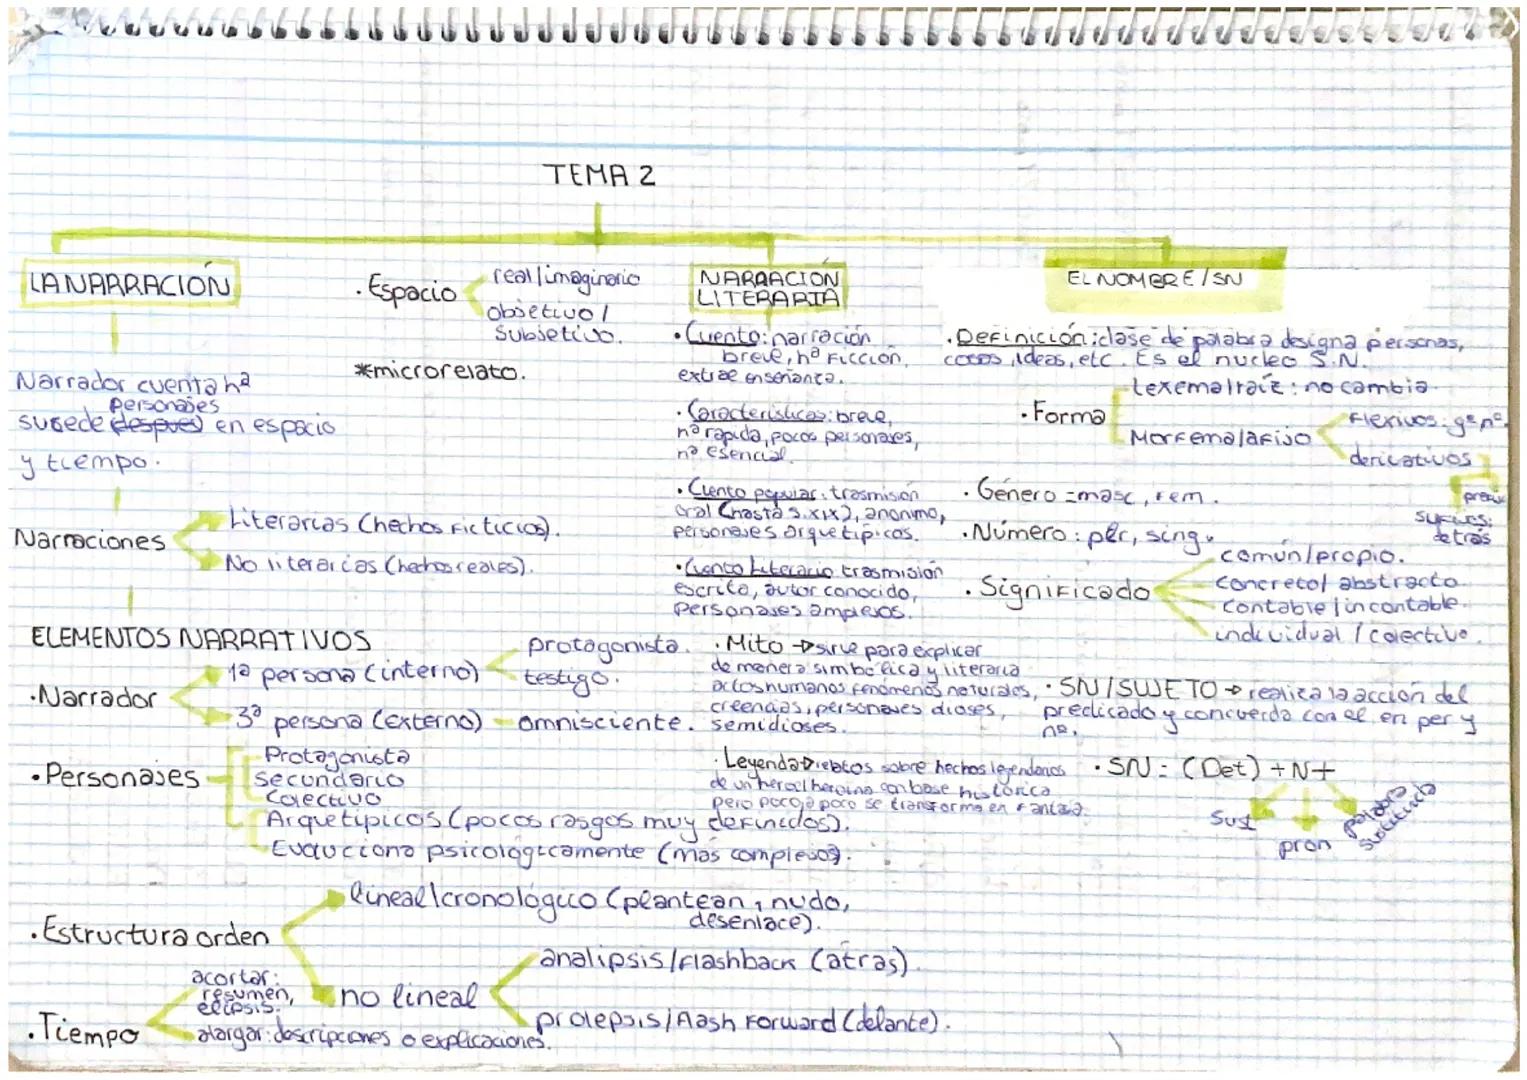 TEMA 2
LA NARRACIÓN
Narrador cuenta hª
personajes
sucede despues en espacio
y tiempo.
Narraciones
Literarias (hechos ficticios).
No literarias (hechos reales).
ELEMENTOS NARRATIVOS
·Narrador
1ª persona (interno)
protagonista.
testigo.
3ª persona (externo)
omnisciente.
·Personajes
Protagonista
secundario
Colectivo
Arquetípicos (pocos rasgos muy definidos).
Evoluciona psicológicamente (más complejos).
·Estructura orden
lineal/cronológico (plantean, nudo,
desenlace).
no lineal
analipsis/flashback (atrás).
prolepsis/flash forward (delante).
·Tiempo
acortar:
resumen,
elipsis.
alargar: descripciones o explicaciones.
·Espacio
real/imaginario
objetivo/
subjetivo.
*microrelato.
NARRACIÓN
LITERARIA
·Cuento: narración
breve, hª ficción,
extrae enseñanza.
·Características: breve,
nª rapida, pocos personajes,
nª esencial.
·Cuento popular: trasmisión
oral (hasta s.XIX), anonimo,
personajes arquetípicos.
·Cuento Literario trasmisión
escrita, autor conocido,
personajes complejos.
·Mito → sirve para explicar
de manera simbólica y literaria
actos humanos, fenómenos naturales,
creencias, personajes dioses,
semidioses.
·Leyenda → relatos sobre hechos legendarios
de un heroe/heroína con base histórica
pero poco a poco se transforma en fantasía.
EL NOMBRE/SN
·Definición: clase de palabra designa personas,
cosas, ideas, etc. Es el nucleo S.N.
·Forma
Lexema/raíz: no cambia.
Morfema/afijo
Flexivos: gº nº.
derivativos
sufijos:
detrás
·Género = masc, fem.
·Número: plr, sing.
·Significado
común/propio.
concreto/abstracto
contable/incontable.
individual/colectivo.
·SN/SUJETO → realiza la acción del
predicado y concuerda con el en per y
nº.
·SN = (Det) + N +
Sust
pron
palabra
sustantivada